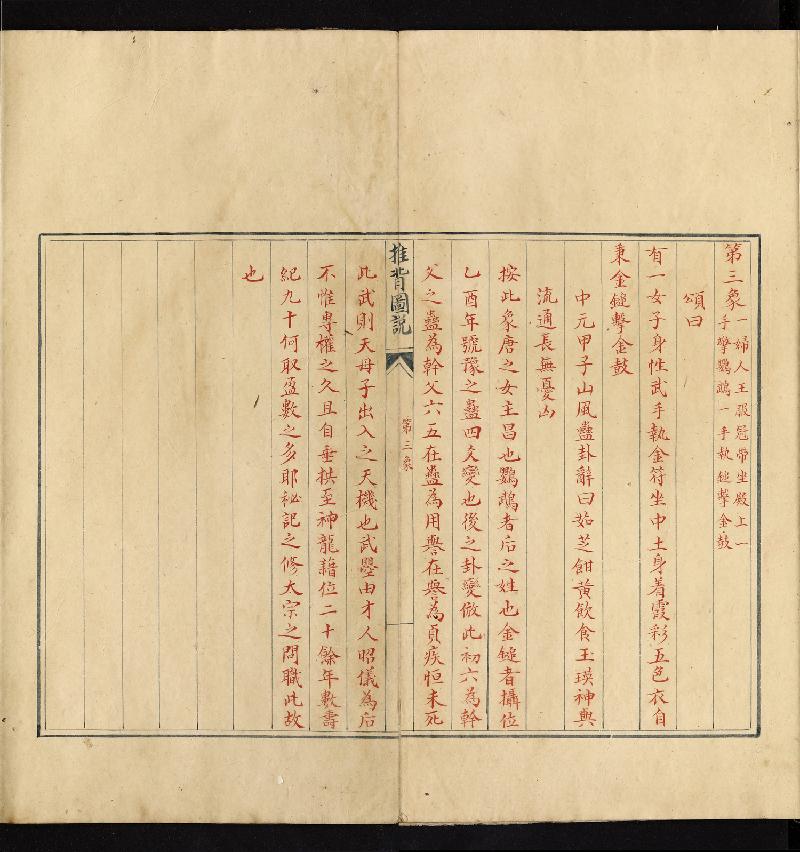 第三象一婦人王服冠帶坐殿上一
手擎鸚鵡一手執鎚擊金鼓
頌曰
有一女子身性武手執金符坐中土身着霞彩五色衣自
秉金鎚擊金鼓
中元甲子山風蠱卦辭曰茹芝餌黃飲食玉瑛神與
流通長無憂凶
按此象唐之女主昌也鸚鵡者后之姓也金鎚者攝位
乙酉年號豫之蠱四爻變也後之卦變倣此初六為幹
父之蠱為幹父六五在蠱為用譽在豫為貞疾恒未死
推背圖說
第三象
此武則天母子出入之天機也武曌由才人昭儀為后
不惟專權之久且自垂拱至神龍藉位二十餘年數壽
紀九十何取盈數之多耶秘記之修太宗之問職此故
也